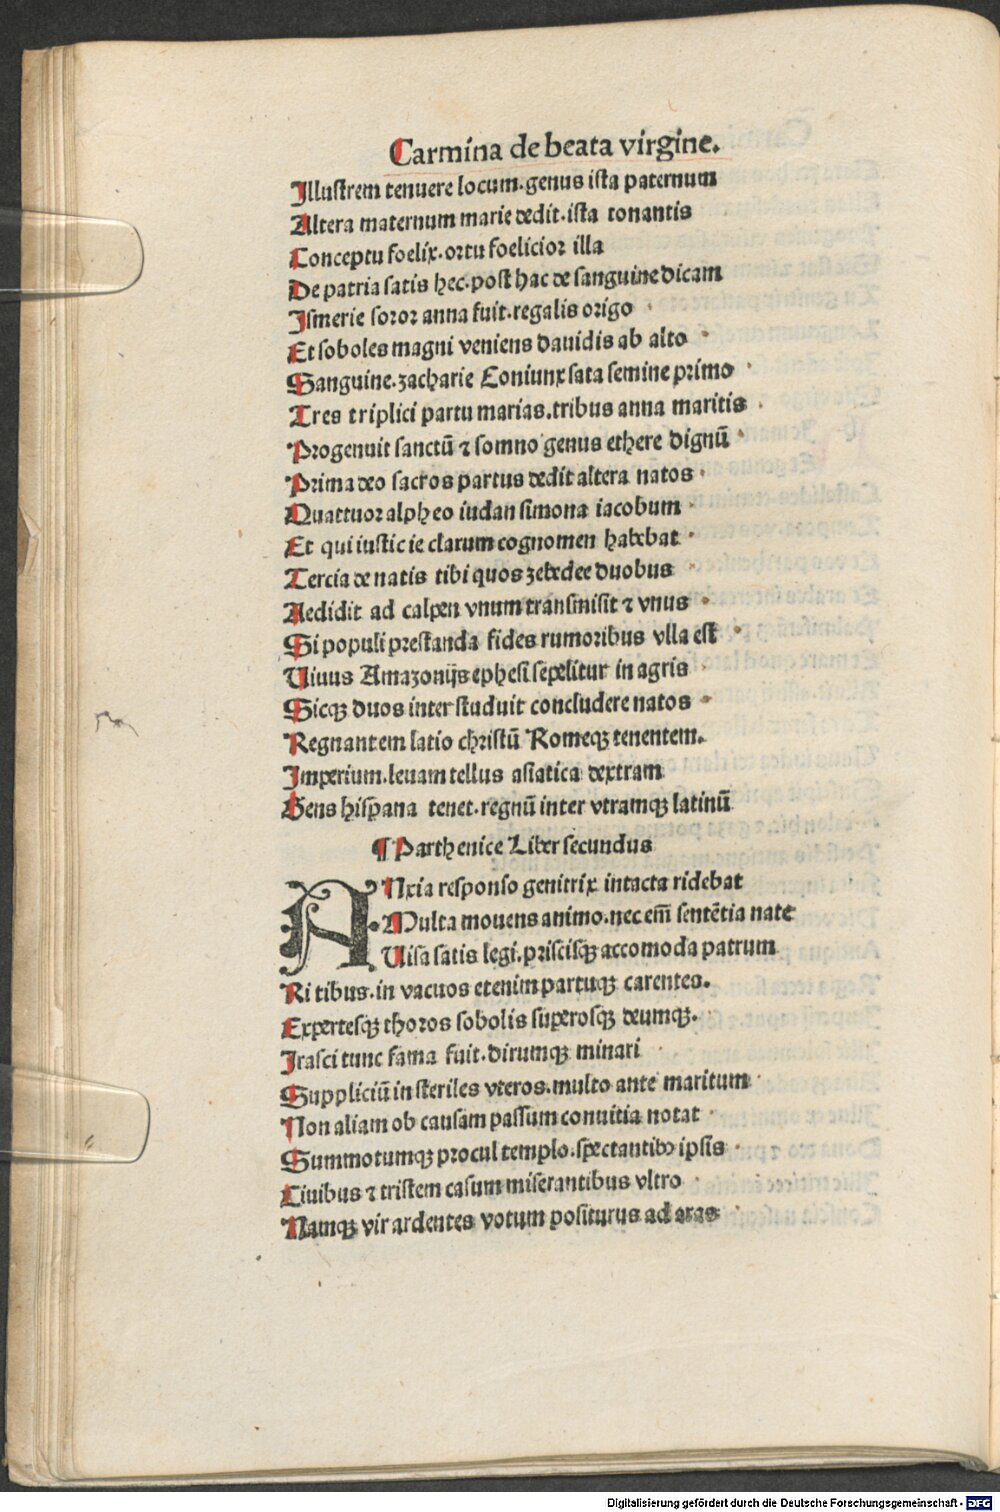 Carmina de beata virgine.
Illuſtrem tenuere locum.genus iſta paternum
Altera maternum marie dedit.iſta tonantis
Conceptu foelix.ortu foelicior illa
De patria ſatis hec.poſt hac de ſanguine dicam
Iſmerie ſoror anna fuit.regalis origo
Et ſoboles magni veniens dauidis ab alto
Sanguine.zacharie Coniunx ſata ſemine primo
Tres triplici partu marias.tribus anna maritis
Progenuit ſanctū ⁊ ſomno genus ethere dignū
Prima deo ſacros partus dedit altera natos
Quattuor alpheo iudan ſimona iacobum
Et qui iuſticie clarum cognomen habebat
Tercia de natis tibi quos zebedee duobus
Aedidit ad calpen vnum tranſmiſit ⁊ vnus
Si populi preſtanda fides rumoribus vlla eſt
Viuus Amazonijs epheſi ſepelitur in agris
Sicqꝫ duos inter ſtuduit concludere natos
Regnantem latio chriſtū Romeqꝫ tenentem.
Imperium.leuam tellus aſiatica dextram
Gens hiſpana tenet.regnū inter vtramqꝫ latinū
¶ Parthenice Liber ſecundus
ANxia reſponſo genitrix intacta ridebat
Multa mouens animo.nec em̄ ſentētia nate
Viſa ſatis legi.priſciſqꝫ accomoda patrum
Ri tibus.in vacuos etenim partuqꝫ carentes.
Experteſqꝫ thoros ſobolis ſuperoſqꝫ deumqꝫ.
Iraſci tunc fama fuit.dirumqꝫ minari
Suppliciū in ſteriles vteros.multo ante maritum
Non aliam ob cauſam paſſum conuitia notat
Summotumqꝫ procul templo.ſpectantibꝰ ipſis
Ciuibus ⁊ triſtem caſum miſerantibus vltro
Namqꝫ vir ardentes votum poſiturus ad aras
Digitalisierung gefördert durch die Deutsche Forschungsgemeinschaft - DFG